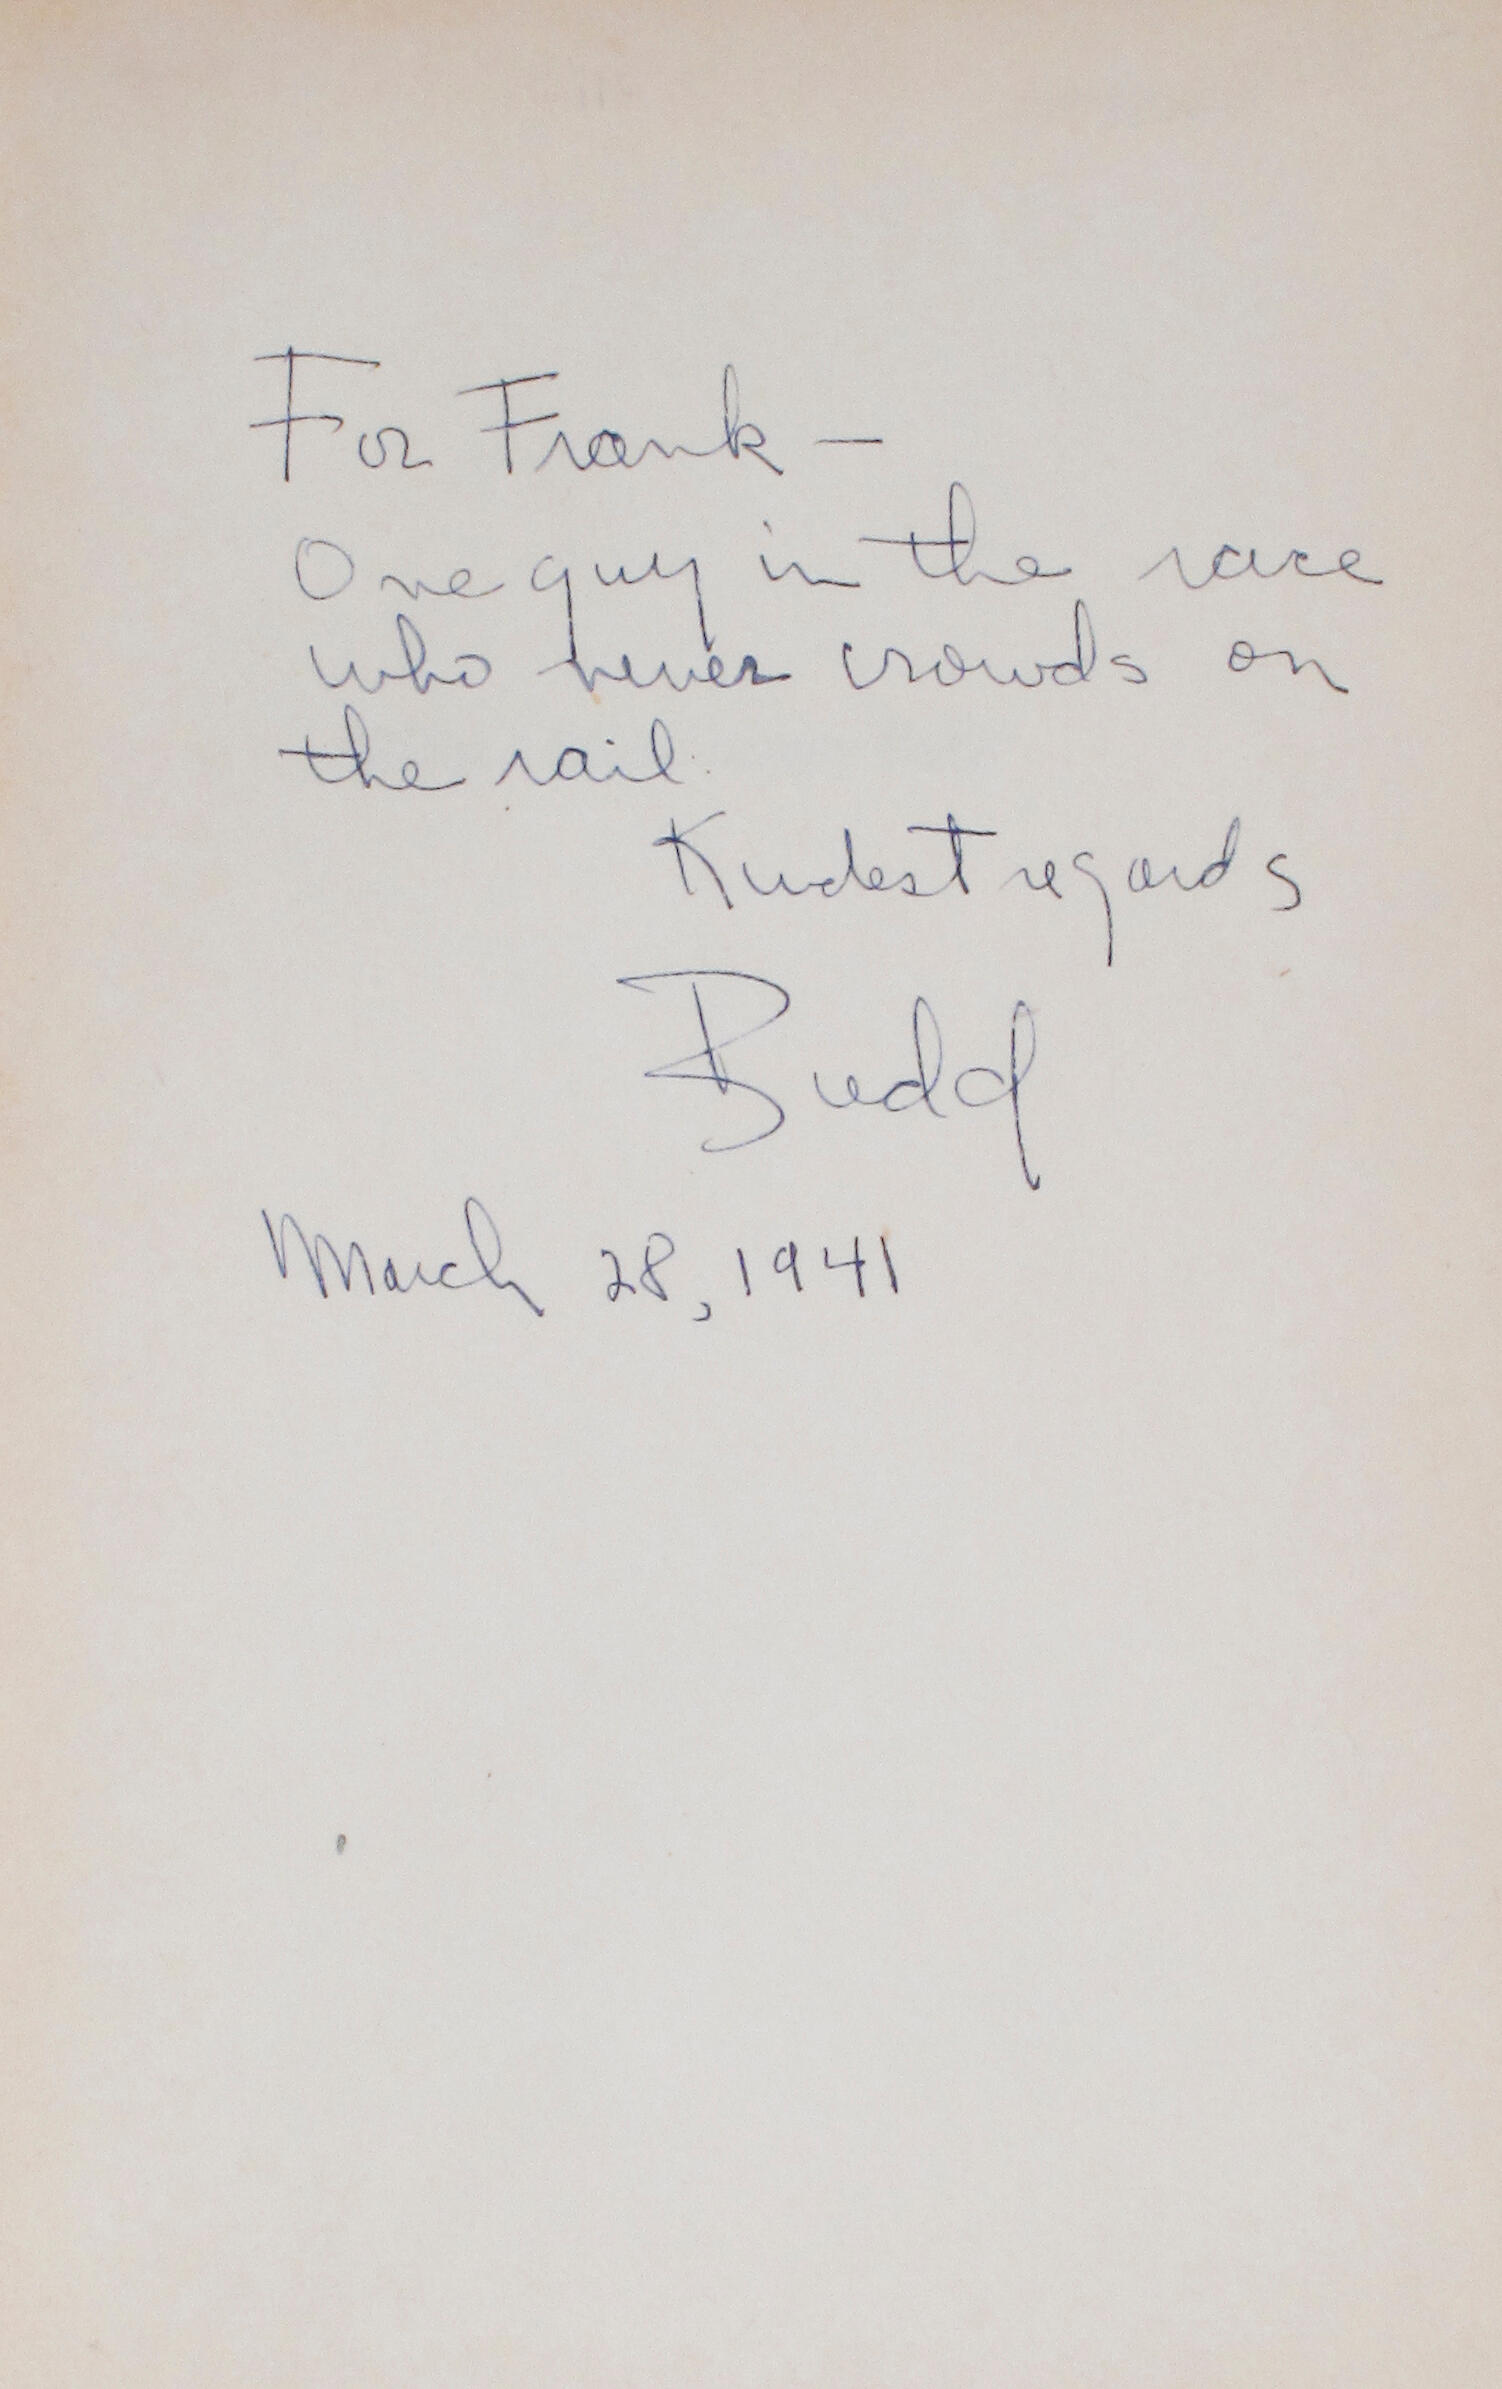 For Frank —
One guy in the race
who never crowds on
the rail.
Kindest regards
Budd
March 28, 1941